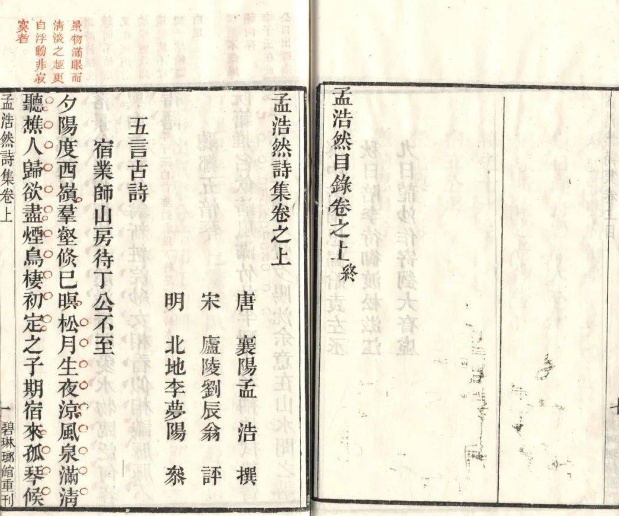 孟浩然目錄卷之上 終
孟浩然詩集卷之上
唐 襄陽孟 浩 撰
宋 廬陵劉辰翁 評
明 北地李夢陽 叅
五言古詩
宿業師山房待丁公不至
夕陽度西嶺羣壑倐巳暝松月生夜涼風泉滿清
聽樵人歸欲盡煙鳥棲初定之子期宿來孤琴候
景物滿眼而
清淡之趣更
自浮動非寂
寞者
孟浩然詩集卷上
一 碧琳瑯館重刊